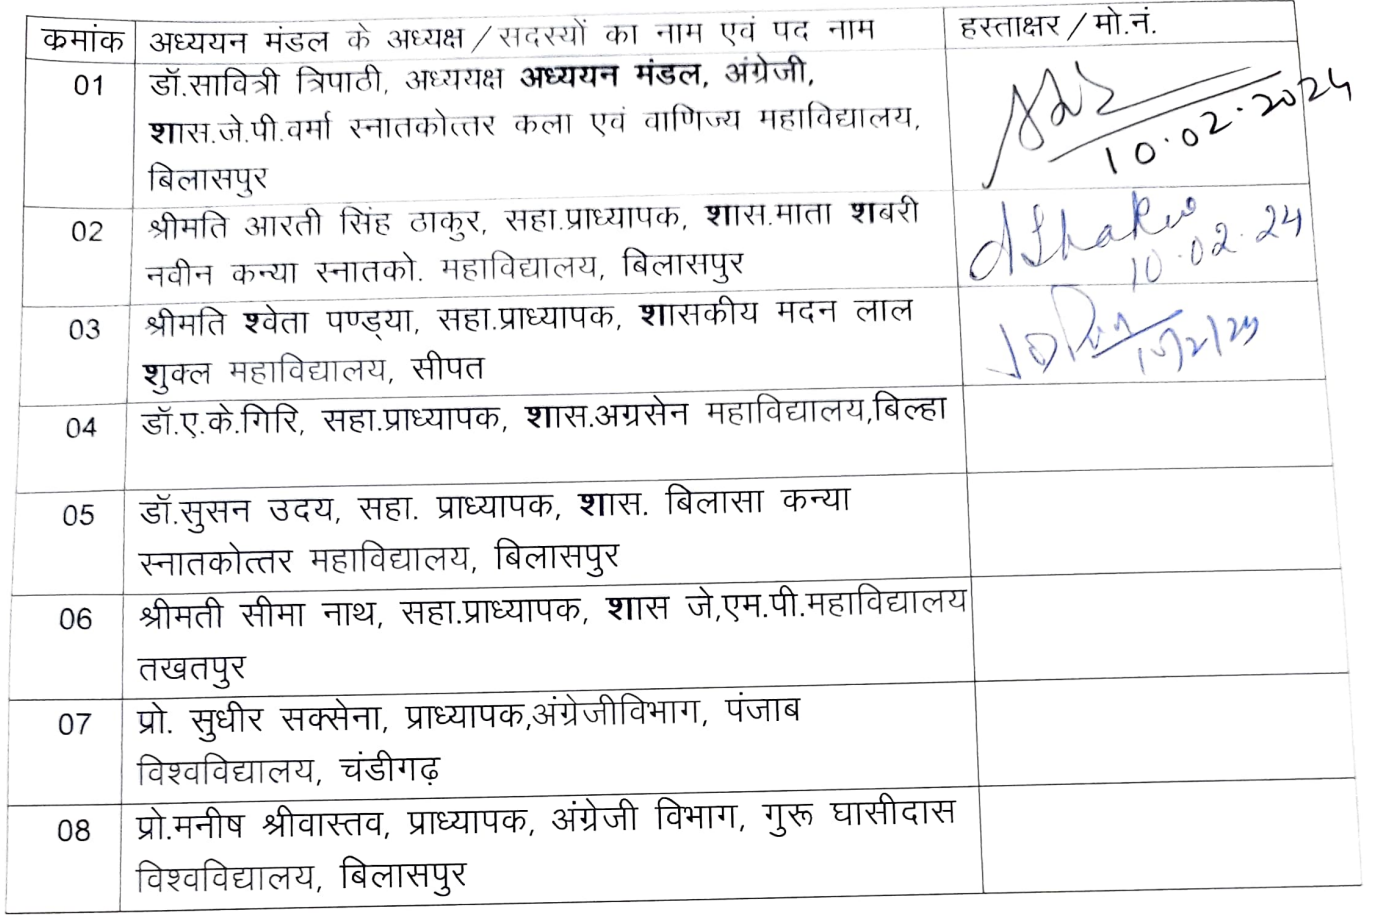 कमांक अध्ययन मंडल के अध्यक्ष / सदस्यों का नाम एवं पद नाम हस्ताक्षर / मो.नं.
01 डॉ.सावित्री त्रिपाठी, अध्ययक्ष अध्ययन मंडल, अंग्रेजी,
शास.जे.पी.वर्मा स्नातकोत्तर कला एवं वाणिज्य महाविद्यालय,
बिलासपुर
10.02.2024
02 श्रीमति आरती सिंह ठाकुर, सहा.प्राध्यापक, शास.माता शबरी
नवीन कन्या स्नातको. महाविद्यालय, बिलासपुर
10.02.24
03 श्रीमति श्वेता पण्ड्या, सहा.प्राध्यापक, शासकीय मदन लाल
शुक्ल महाविद्यालय, सीपत
04 डॉ.ए.के.गिरि, सहा.प्राध्यापक, शास.अग्रसेन महाविद्यालय,बिल्हा
05 डॉ.सुसन उदय, सहा. प्राध्यापक, शास. बिलासा कन्या
स्नातकोत्तर महाविद्यालय, बिलासपुर
06 श्रीमती सीमा नाथ, सहा.प्राध्यापक, शास जे,एम.पी.महाविद्यालय
तखतपुर
07 प्रो. सुधीर सक्सेना, प्राध्यापक,अंग्रेजीविभाग, पंजाब
विश्वविद्यालय, चंडीगढ़
08 प्रो.मनीष श्रीवास्तव, प्राध्यापक, अंग्रेजी विभाग, गुरू घासीदास
विश्वविद्यालय, बिलासपुर